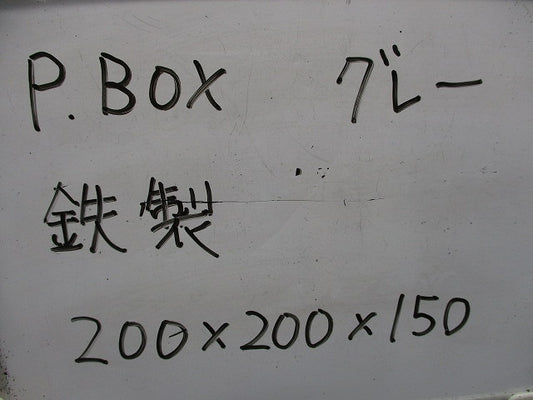 P.BOX グレー
鉄製
200×200×150